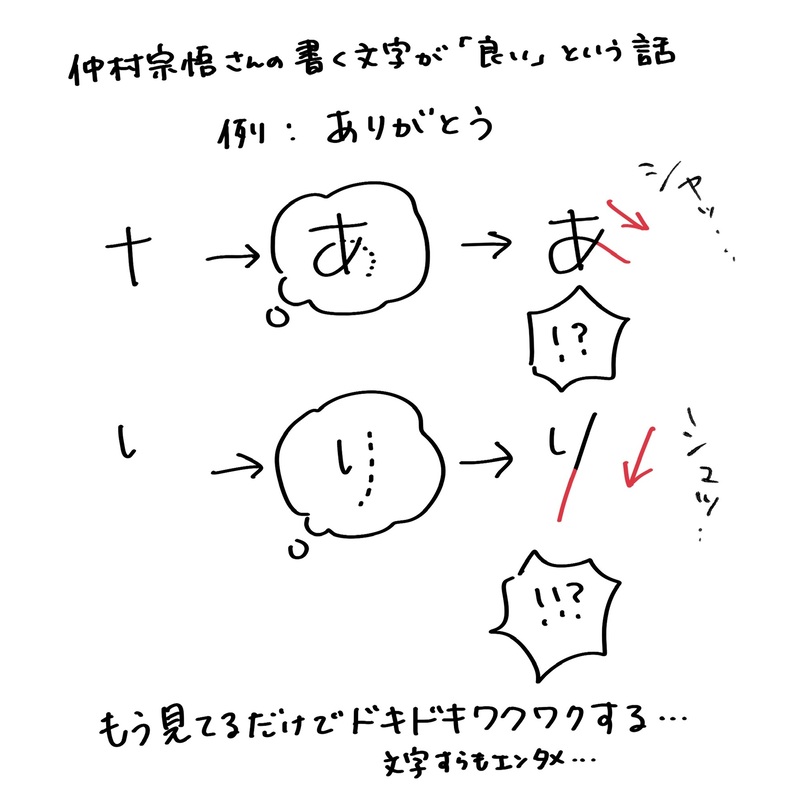 仲村宗悟さんの書く文字が「良い」という話
例: ありがとう
十 → あ → あ シャッ...
!?
し → り → り シュッ...
!!?
もう見てるだけでドキドキワクワクする...
文字すらもエンタメ...